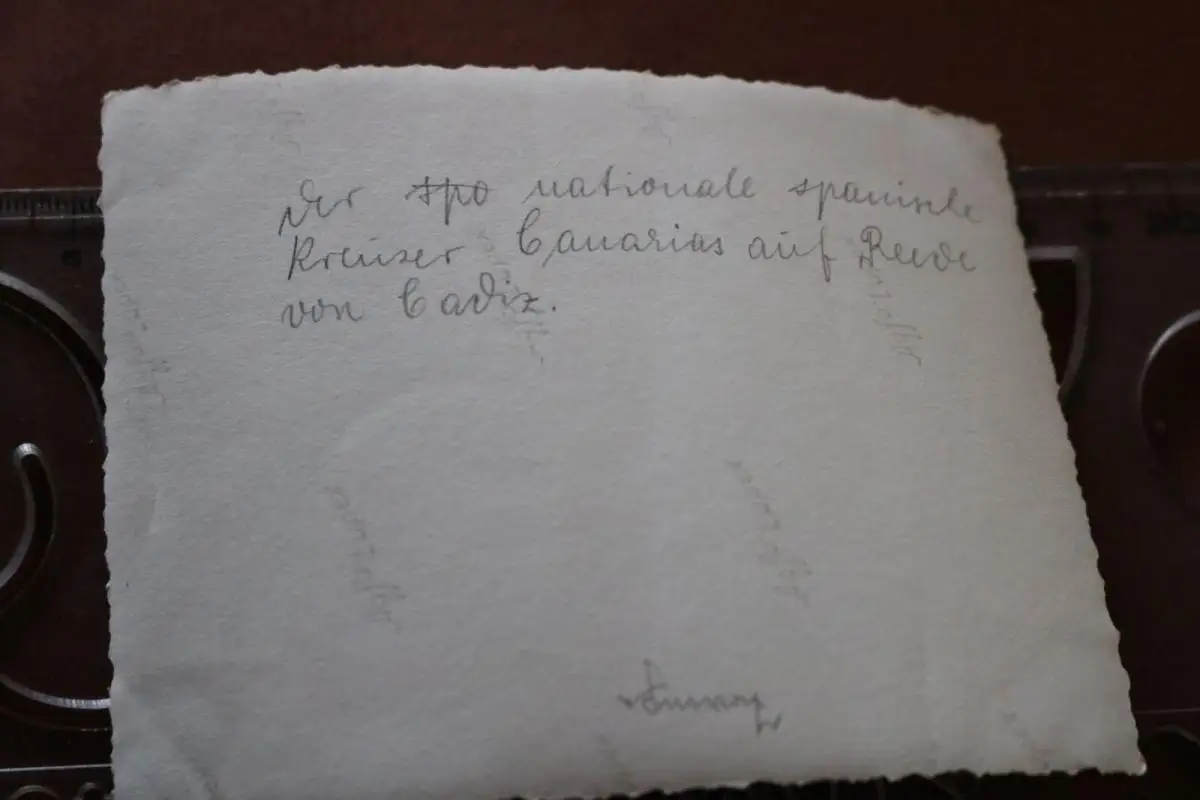 Der spo nationale spanische
Kreuzer Canarias auf Reede
von Cadiz.